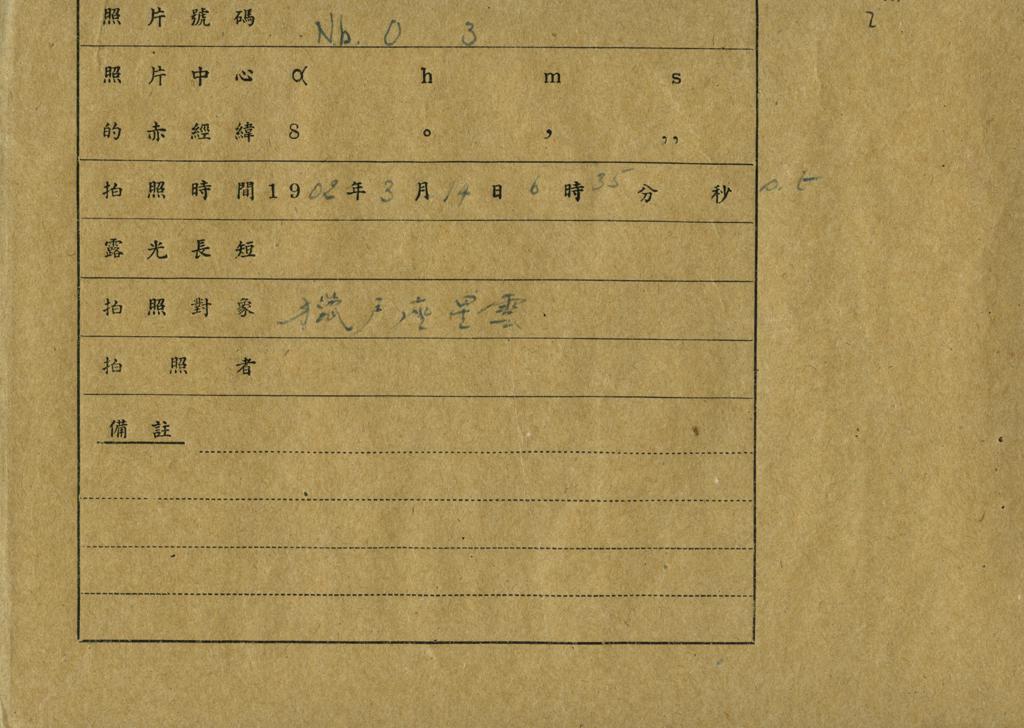 2
照片號碼 Nb. 0 3
照片中心 α h m s
的赤經緯 δ ° ′ ″
拍照時間 1902年3月14日6時35分 秒 p. t
露光長短
拍照對象 獵戶座星雲
拍照者
備註